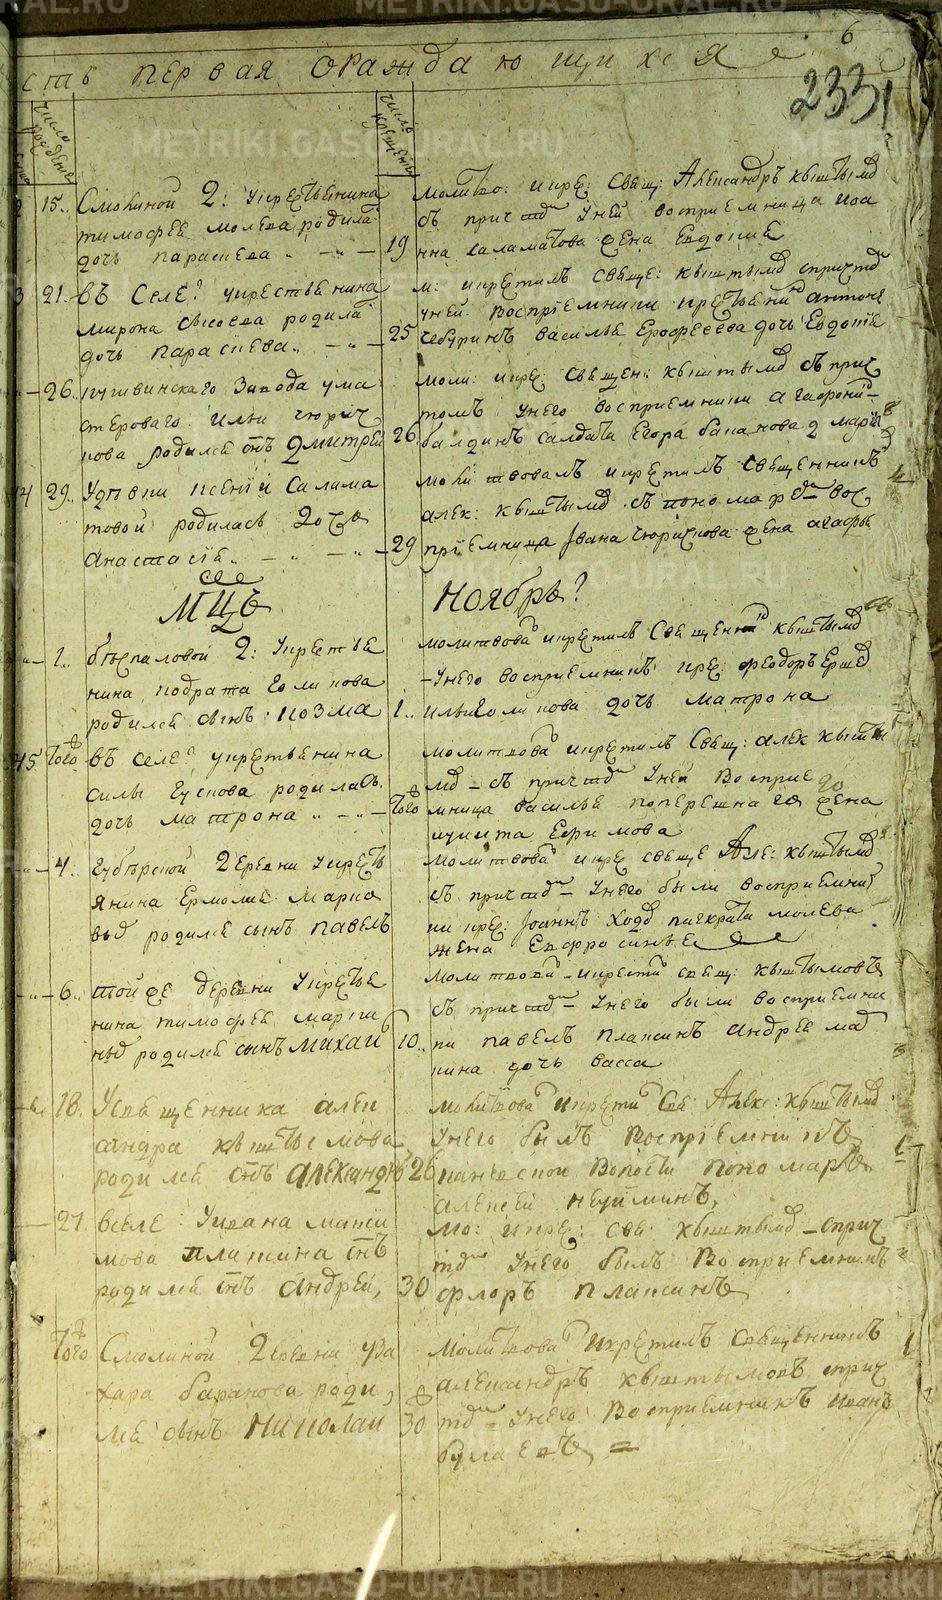 6
сть первая ораждающихся
2331
число рождения
число крещения
15 Смолиной 2: укрестьянина
тимофея молева родила
дочь парасковья
19
молитво: икре: Свящ: Александръ кыштымо
съ причто унея восприемница иоа
нна саламатова жена Евдокия
3 21 въ Селе? укрестьянина
мирона сысоева родила
дочь параскева
25
м: икрестилъ свяще: кыштымо спричто
унея восприемники крестьянинъ антоне
чебуринъ василья Ерофеева дочь Евдокия
26 завода ума
стероваго ильи чюрич
кова родился снъ Дмитрей
26
моли: икре: священ: кыштымо съ прич
томъ унего восприемники агафони
балдинъ салдата Егора баканова д марія
14 29 Удовки ксении Салама
товой родилась дочь
анастасія
29
моли твовалъ икрестилъ священникъ
алек: кыштымо съ пономаремъ вос
пріемница Ивана чюричкова жена агафья
мцъ Ноябрь?
1 беспаловой 2: укрестья
нина кодрата голикова
родился сынъ козма
1
молитвова икрестилъ Священ кыштымо
унего восприемникъ кре: феодоръ Ерше
ильи голикова дочь матрона
15 того въ селе? укрестьянина
силы гускова родилась
дочь матрона
того
молитвова икрестилъ Свящ: алек кышты
мо съ причто унея восприе
мница василья поперешнаго жена
Ефимова
4 губерской деревни укресть
янина Ермолия марко
выо родился сынъ павелъ
молитвова икре свяще Але: кыштымо
съ причто унего были восприемни
ки кре: Іоаннъ панкрата молева
жена Евфросинья
6 тойже деревни укрестья
нина тимофея марки
ныо родился сынъ михаи
10
молитвова икрести свящ: кыштымовъ
съ причто унего были восприемни
ки павелъ плаксинъ андрея ма
кина дочь васса
18 Усвященника алек
сандра кыштымова
родился снъ александръ
26
молитвова икрести Свя: Алекс: кыштымо
унего былъ восприемникъ
волости пономарь
алексей неуйминъ
27 Вселе уивана макси
мова плаксина снъ
родился снъ андрей
30
мо: икре: свя: кыштымо сприч
то унего былъ восприемникъ
флоръ плаксинъ
того Смолиной деревни уза
хара баранова роди
лся сынъ николаи
30
молитвова икрестилъ священникъ
александръ кыштымовъ сприч
то унего восприемникъ иванъ
булаевъ